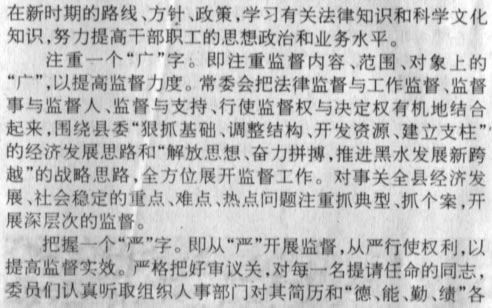 在新时期的路线、方针、政策,学习有关法律知识和科学文化
知识,努力提高干部职工的思想政治和业务水平。
注重一个“广”字。即注重监督内容、范围、对象上的
“广”,以提高监督力度。常委会把法律监督与工作监督、监督
事与监督人、监督与支持、行使监督权与决定权有机地结合
起来,围绕县委“狠抓基础、调整结构、开发资源、建立支柱”
的经济发展思路和“解放思想、奋力拼搏,推进黑水发展新跨
越”的战略思路,全方位展开监督工作。对事关全县经济发
展、社会稳定的重点、难点、热点问题注重抓典型、抓个案,开
展深层次的监督。
把握一个“严”字。即从“严”开展监督,从严行使权利,以
提高监督实效。严格把好审议关,对每一名提请任命的同志,
委员们认真听取组织人事部门对其简历和“德、能、勤、绩”各